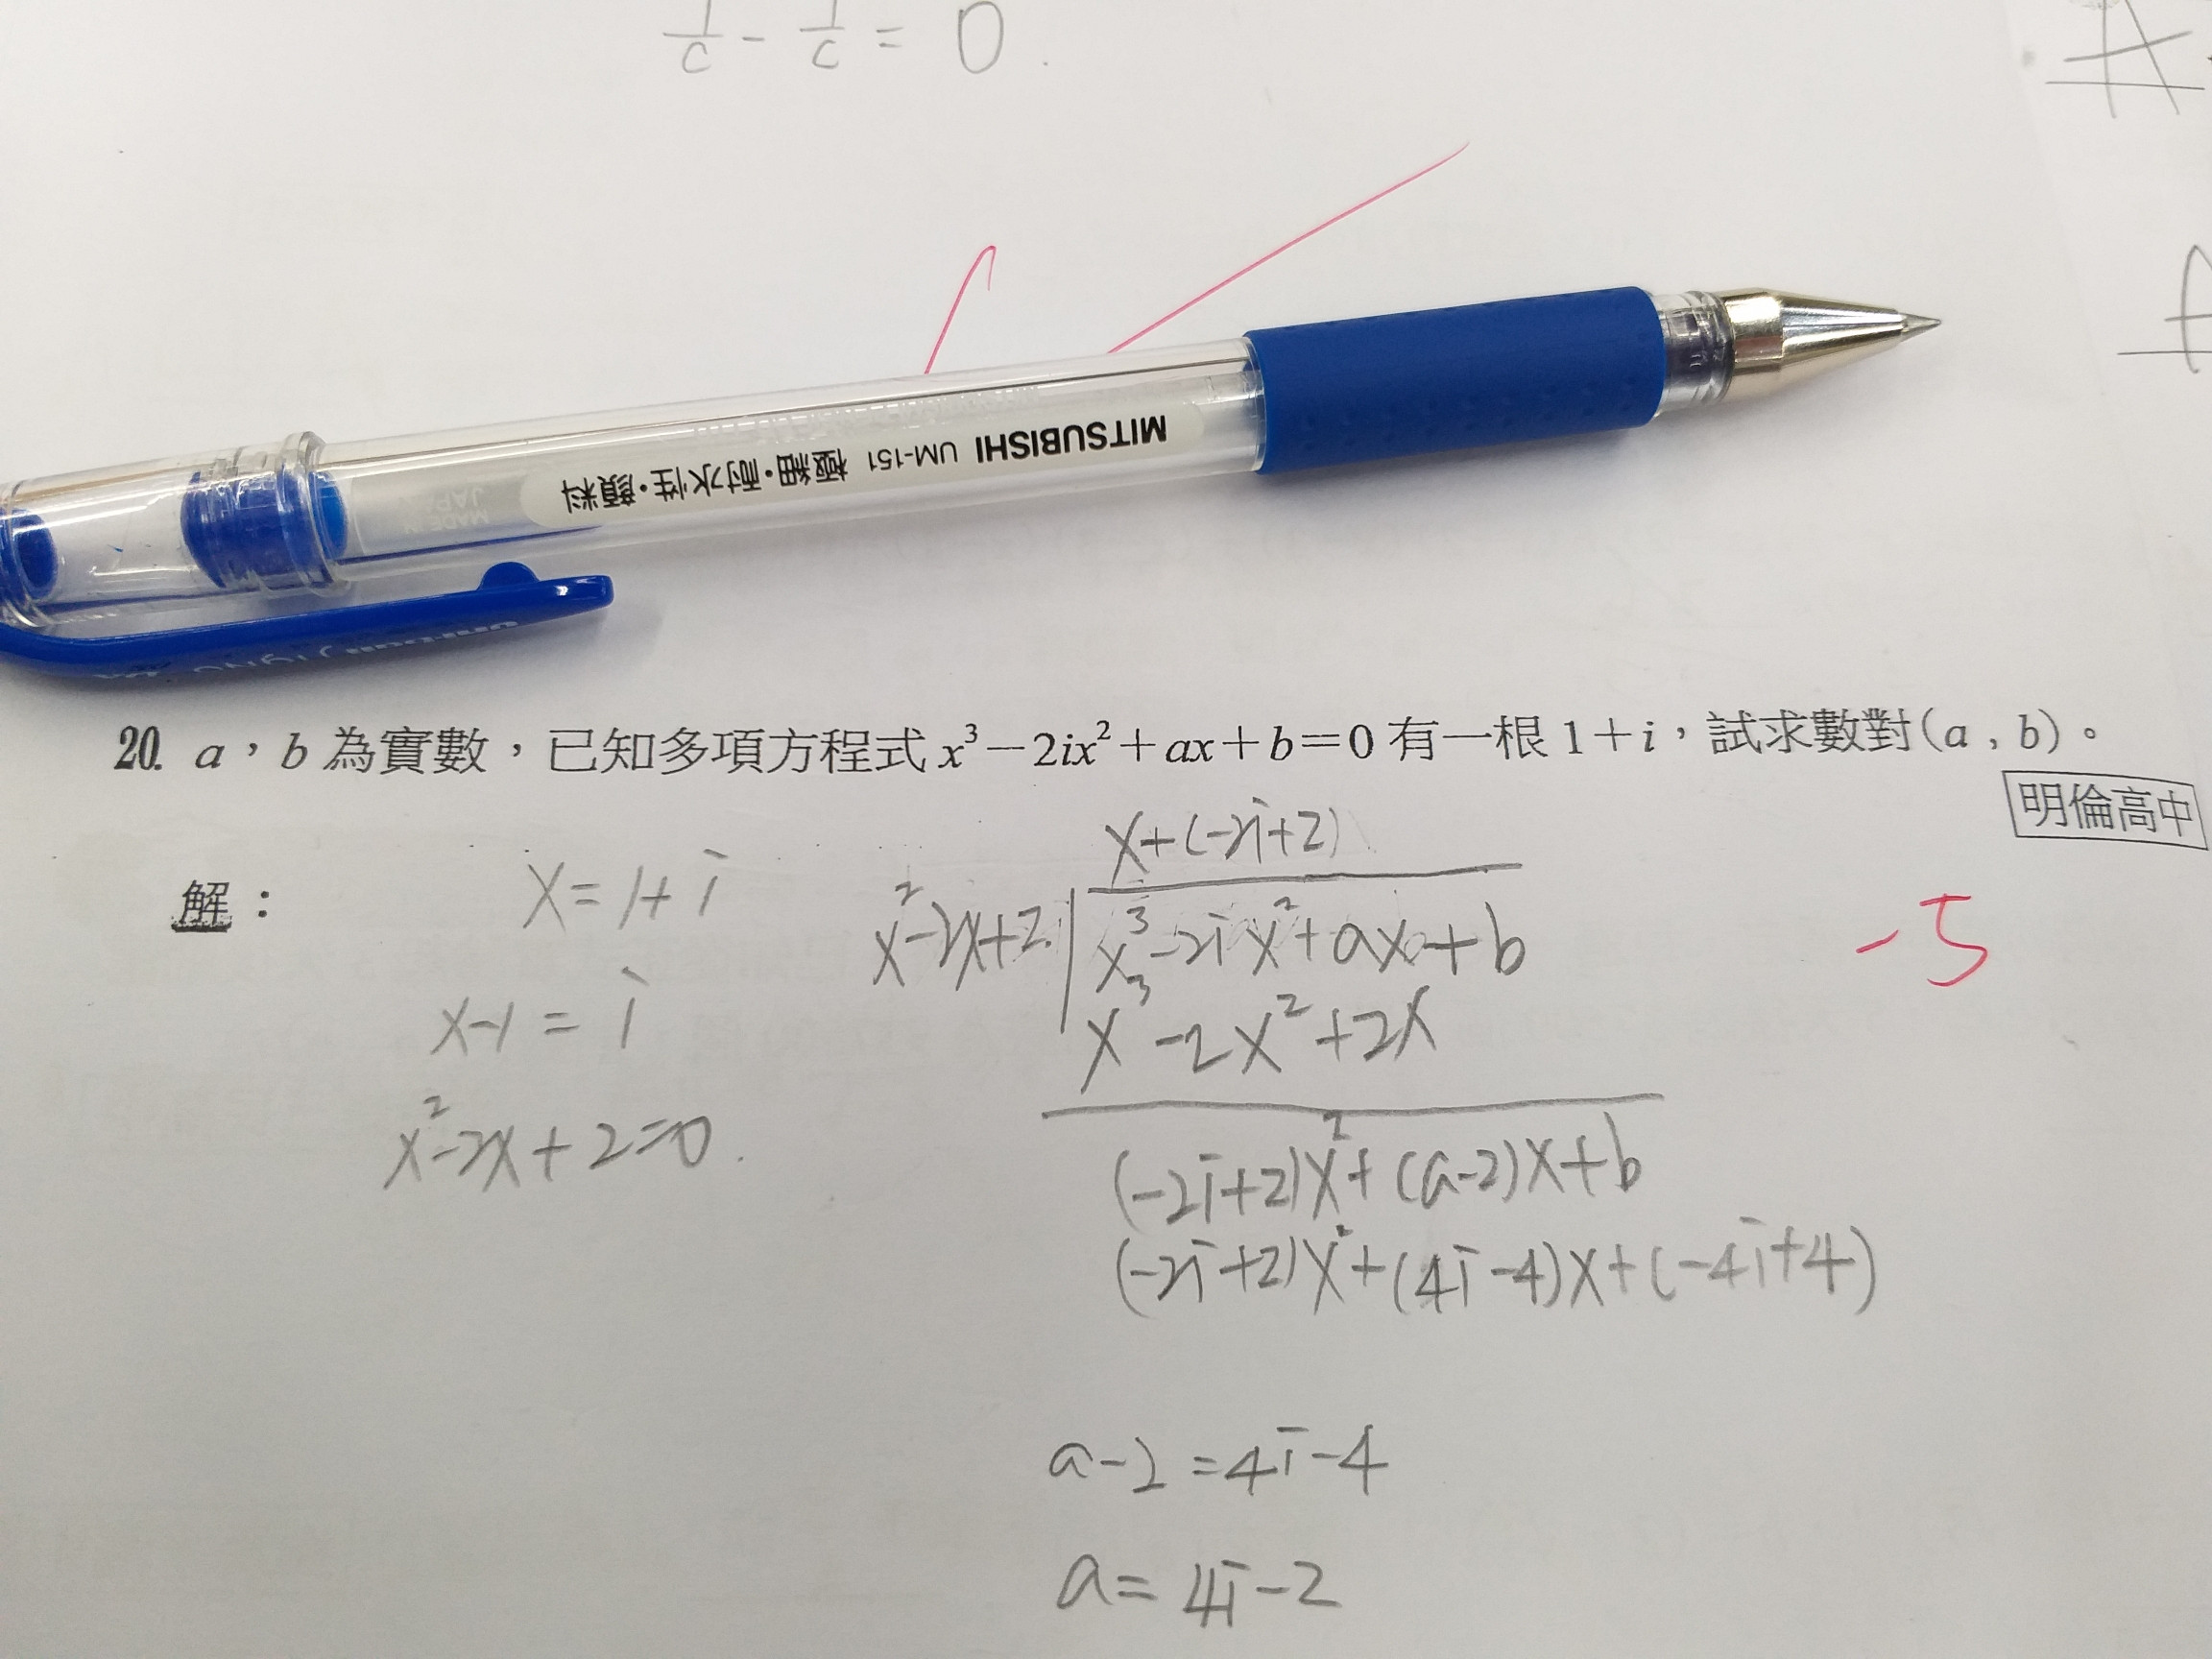 1/c - 1/c = 0.
A
MITSUBISHI UM-151 極細・耐水性・顔料
MADE IN
JAPAN
20. a，b 為實數，已知多項方程式 x³－2ix²＋ax＋b＝0 有一根 1＋i，試求數對(a , b)。
明倫高中
解：
x = 1 + i
x-1 = i
x²-2x+2=0.
x+(-2i+2)
x²-2x+2 x³-2ix²+ax+b
x³-2x²+2x
(-2i+2)x²+(a-2)x+b
(-2i+2)x²+(4i-4)x+(-4i+4)
a-2 = 4i-4
a = 4i-2
-5